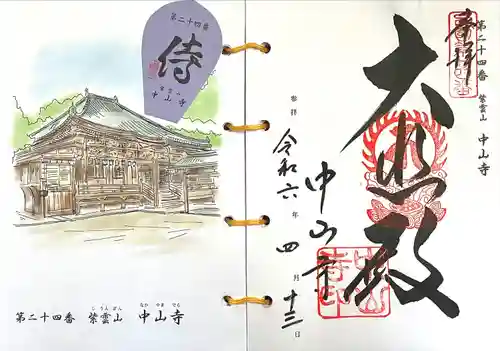 第二十四番
侍
紫雲山
中山寺
し うん ざん なか やま でら
第二十四番 紫雲山 中山寺
第二十四番 紫雲山 中山寺
奉拝
大悲殿
中山寺
参拝 令和六年四月十三日